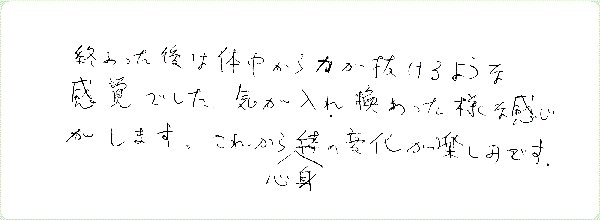 終わった後は体中から力が抜けるような
感覚でした。気が入れ換わった様な感じ
がします。これから の変化が楽しみです。
心身